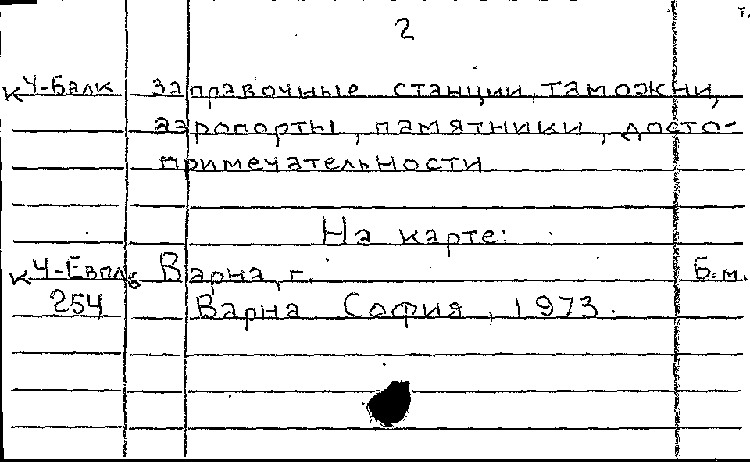 2
К Ч-Балк заправочные станции, таможни,
аэропорты, памятники, досто-
примечательности
На карте:
Варна, г. Б.м.
254 Варна София, 1973.